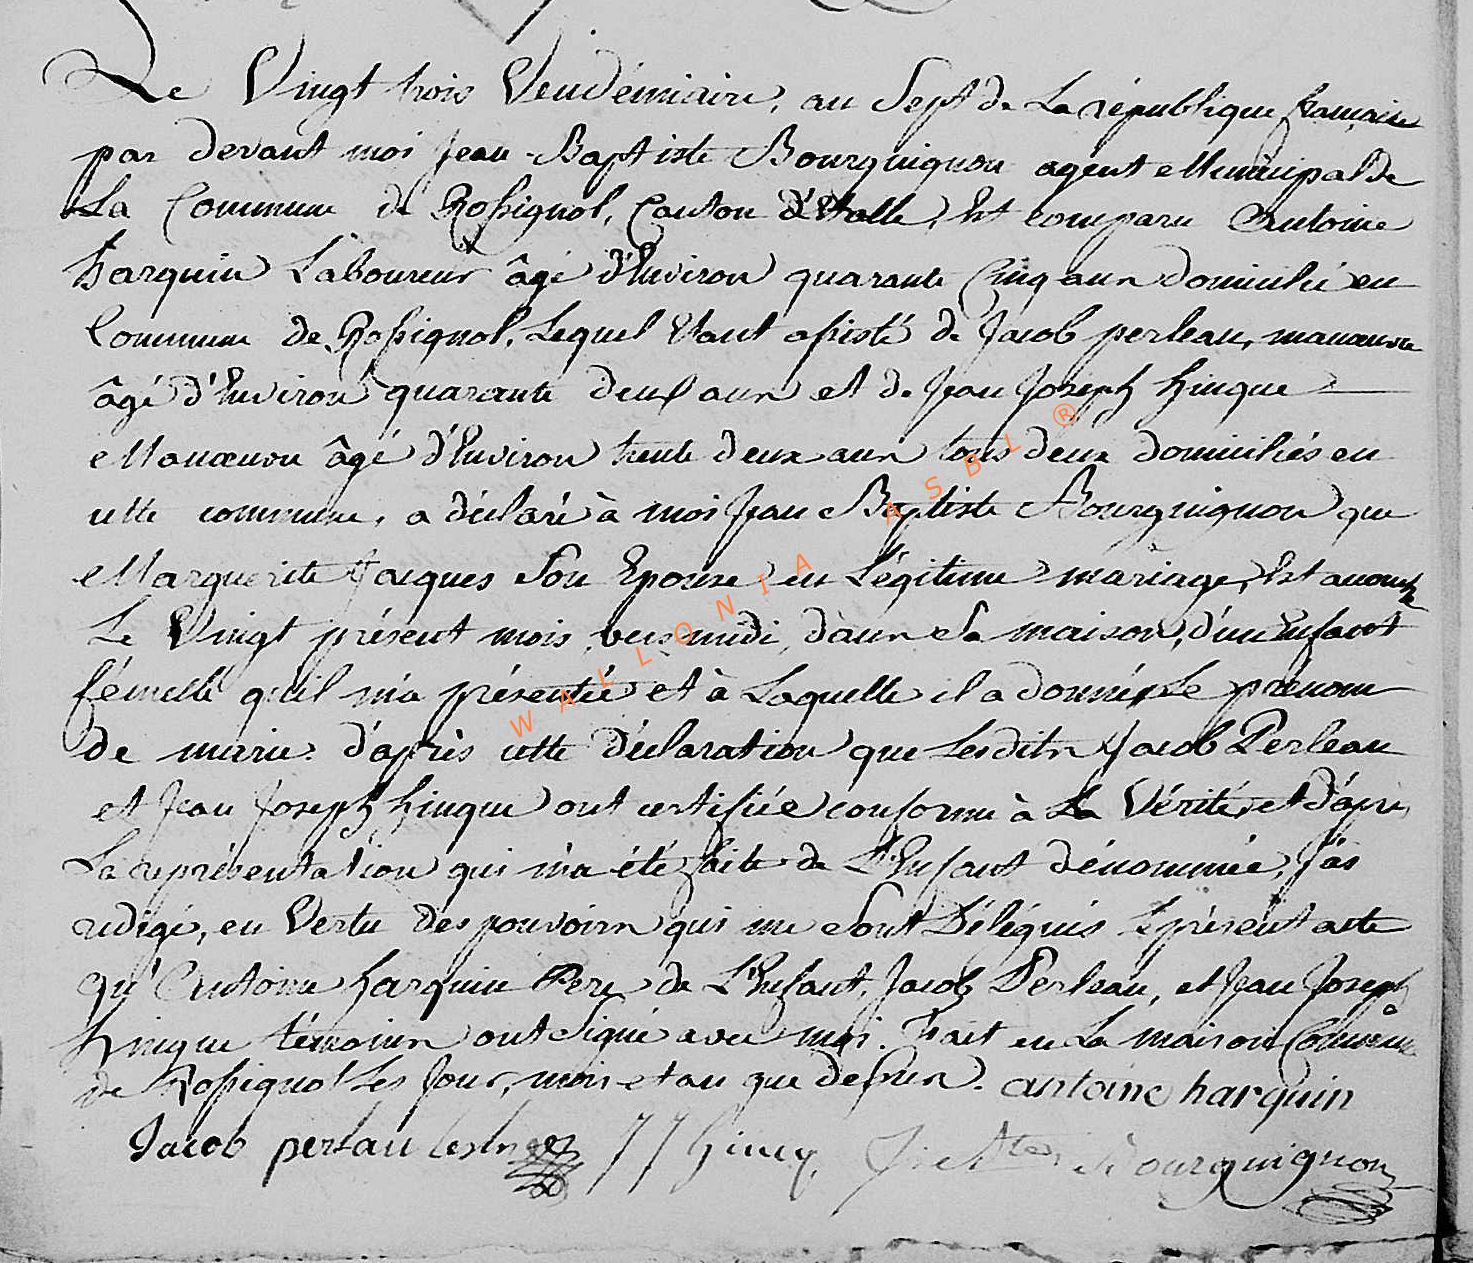 Le Vingt trois Vendémiaire, an Sept de La république francaise
par devant moi Jean-Baptiste Bourguignon agent Municipal de
La Commune de Rossignol, Canton d'Etalle, Est comparu Antoine
harquin Laboureur âgé d'Environ quarante Cinq ans domicilié en
Commune de Rossignol, Lequel Etant assisté de Jacob perleau, manœuvre
âgé d'Environ quarante deux ans et de Jean Joseph hinque
Manœuvre âgé d'Environ trente deux ans tous deux domiciliés en
cette commune, a déclaré à moi Jean Baptiste Bourguignon que
Marguerite Jacques Son Epouse en Légitime mariage, Est accouchée
Le Vingt présent mois, vers midi, dans Sa maison, d'un Enfant
fémelle qu'il m'a présentée et à Laquelle il a donné Le prénom
de marie. d'après cette déclaration que Lesdits Jacob Perleau
et Jean Joseph hinque ont certifiée conforme à La Vérité, et d'après
La représentation qui m'a été faite de L'Enfant dénommée, j'ai
redigé, en Vertu des pouvoirs qui me Sont Délégués le présent acte
qu'Antoine harquin Pere de L'Enfant, Jacob Perleau, et Jean Joseph
hinque témoins ont Signé avec moi. Fait en La maison Commune
de Rossignol Les Jour, mois et an que dessus. antoine harquin
Jacob perlau JJ hincq, Bourguignon
WALLONIA ASBL ®